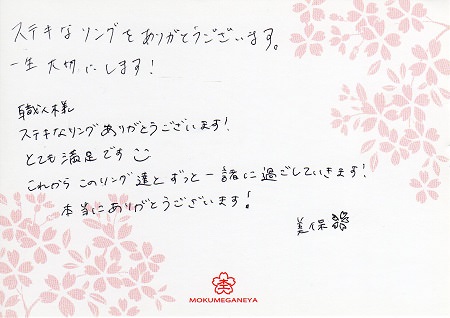 ステキなリングをありがとうございます。
一生大切にします!
職人様
ステキなリングありがとうございます!
とても満足です
これからこのリング達とずっと一諸に過ごしていきます!
本当にありがとうございます!
美保
MOKUMEGANEYA